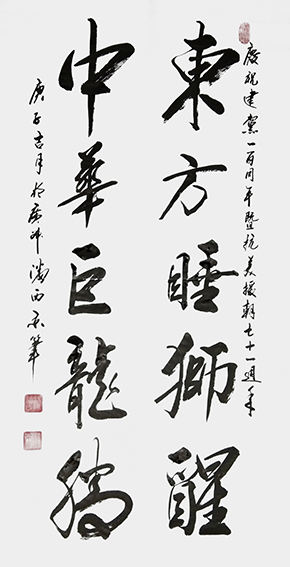 慶祝建黨一百周年暨抗美援朝七十一週年
東方睡獅醒
中華巨龍騰
庚子吉月於廣州